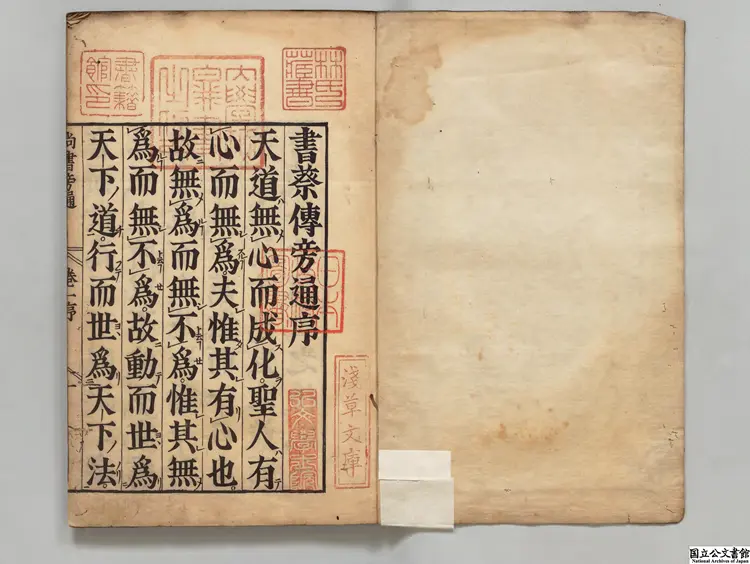 林氏藏書
書籍館印
書蔡傳旁通序
天道無心而成化。聖人有
心而無爲。夫惟其有心也
故無爲而無不爲。惟其無
爲而無不爲。故動而世爲
天下道。行而世爲天下法。
尚書旁通 卷一序
淺草文庫
国立公文書館
National Archives of Japan